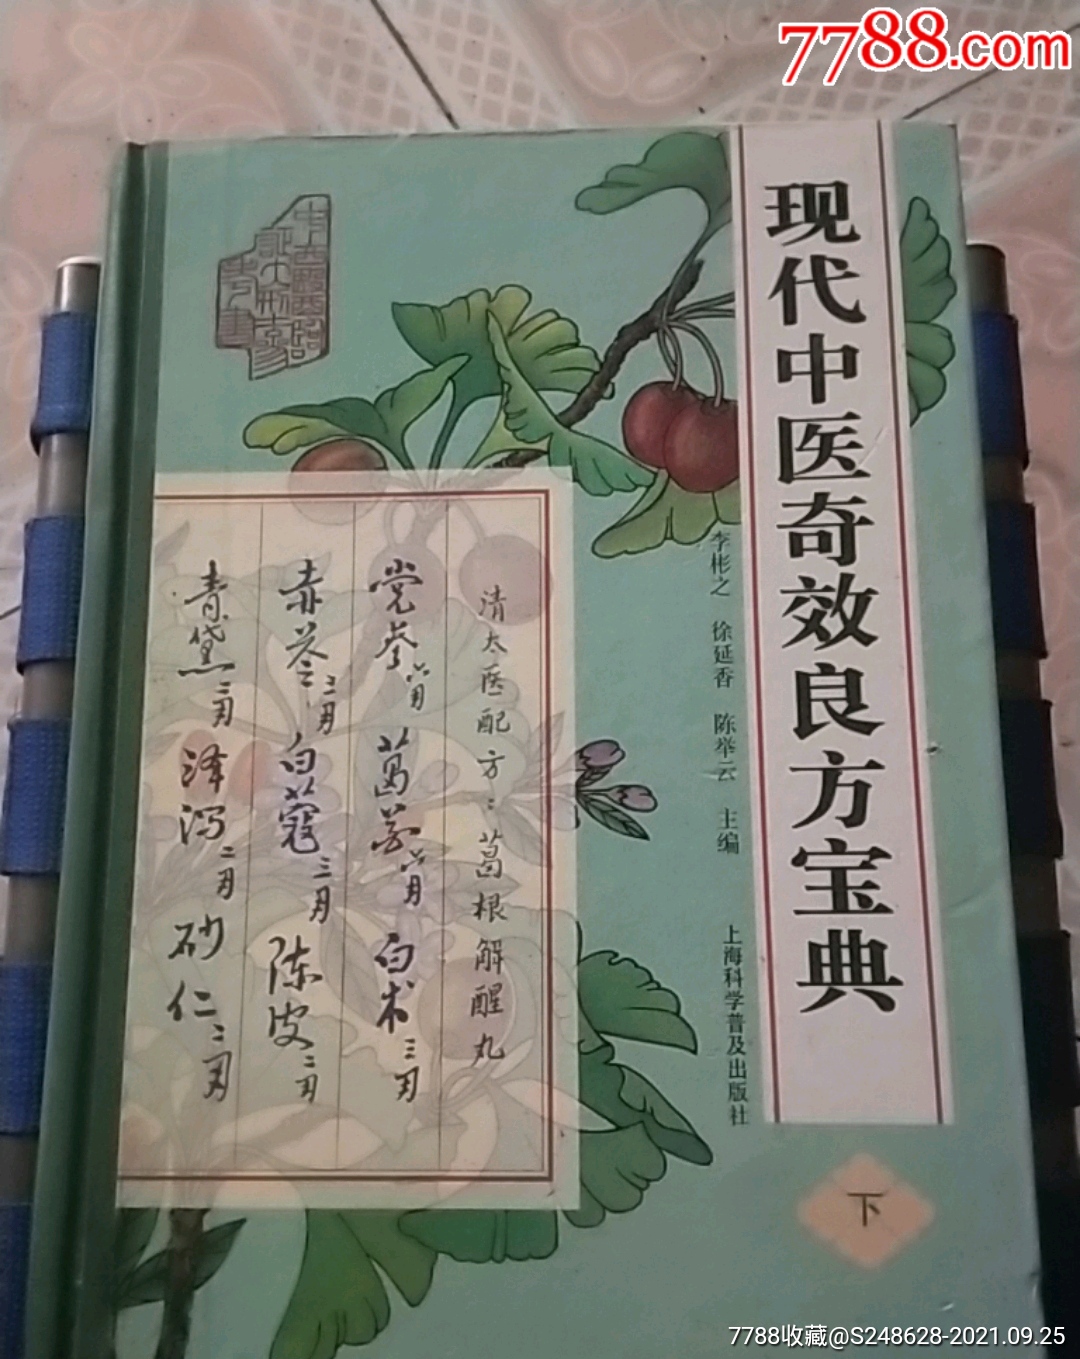 7788.com
现代中医奇效良方宝典
李彬之 徐延香 陈举云 主编
上海科学普及出版社
下
清太医配方：葛根解醒丸
党参 葛花 白术三
赤苓 白蔻三 陈皮二
青黛二 泽泻二 砂仁二
7788收藏@S248628-2021.09.25